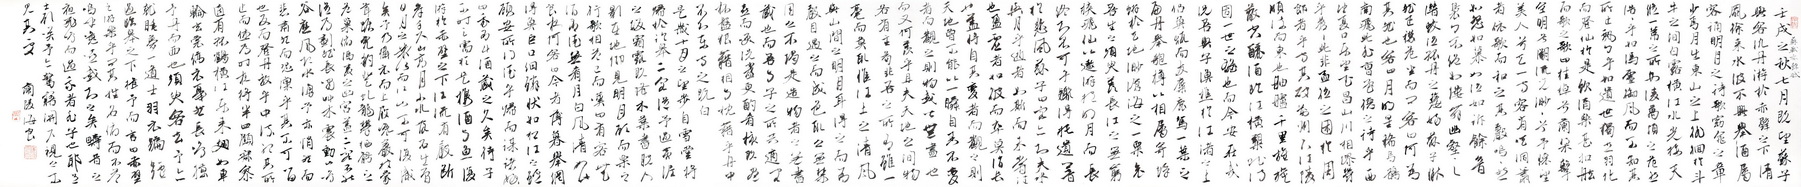 壬戌之秋七月既望蘇子
與客泛舟游於赤壁之下清
風徐來水波不興舉酒屬
客誦明月之詩歌窈窕之章
少焉月出於東山之上徘徊於斗
牛之間白露橫江水光接天縱
一葦之所如凌萬頃之茫然
浩浩乎如馮虛御風而不知其
所止飄飄乎如遺世獨立羽化
而登仙於是飲酒樂甚扣舷
而歌之歌曰桂棹兮蘭槳擊
空明兮溯流光渺渺兮予懷望
美人兮天一方客有吹洞簫
者倚歌而和之其聲嗚嗚然
如怨如慕如泣如訴餘音
嫋嫋不絕如縷舞幽壑之
潛蛟泣孤舟之嫠婦蘇子愀
然正襟危坐而問客曰何為
其然也客曰月明星稀烏鵲
南飛此非曹孟德之詩乎西
望夏口東望武昌山川相繆鬱
乎蒼蒼此非孟德之困於周
郎者乎方其破荊州下江陵
順流而東也舳艫千里旌旗
蔽空釃酒臨江橫槊賦詩
固一世之雄也而今安在哉
況吾與子漁樵於江渚之上
侶魚蝦而友麋鹿駕一葉之
扁舟舉匏樽以相屬寄蜉
蝣於天地渺滄海之一粟哀
挾飛仙以遨遊抱明月而長
終知不可乎驟得托遺響
於悲風蘇子曰客亦知夫水
與月乎逝者如斯而未嘗往
也盈虛者如彼而卒莫消長
也蓋將自其變者而觀之則
天地曾不能以一瞬自其不變
者而觀之則物與我皆無盡也
而又何羨乎且夫天地之間物
各有主苟非吾之所有雖一
毫而莫取惟江上之清風
與山間之明月耳得之而為
聲目遇之而成色取之無禁
用之不竭是造物者之無盡
藏也而吾與子之所共適客
喜而笑洗盞更酌肴核既盡
杯盤狼藉相與枕藉乎舟中
不知東方之既白
是歲十月之望步自雪堂將
歸於臨皋二客從予過黃泥
之坂霜露既降木葉盡脫人
影在地仰見明月顧而樂之
行歌相答已而嘆曰有客無
酒有酒無肴月白風清如此
良夜何客曰今者薄暮舉網
得魚巨口細鱗狀如松江之鱸
顧安所得酒乎歸而謀諸婦
婦曰我有斗酒藏之久矣待子
不時之需於是攜酒與魚復
游於赤壁之下江流有聲斷
岸千尺山高月小水落石出曾
日月之幾何而江山不可復識矣
予乃攝衣而上履巉岩披蒙
茸踞虎豹登虬龍攀栖鶻之
危巢俯馮夷之幽宮蓋二客不能
從焉劃然長嘯草木震動山鳴
谷應風起水湧予亦悄然而
悲肅然而恐凜乎其不可留
也反而登舟放乎中流聽其所
止而休焉時夜將半四顧寂寥
適有孤鶴橫江東來翅如車
輪玄裳縞衣戛然長鳴掠
予舟而西也須臾客去予亦
就睡夢一道士羽衣蹁躚
過臨皋之下揖予而言曰赤壁
之游樂乎問其姓名俯而不答
嗚呼噫嘻我知之矣疇昔之
夜飛鳴而過我者非子也耶道士
顧笑予亦驚寤開戶視之不
見其處